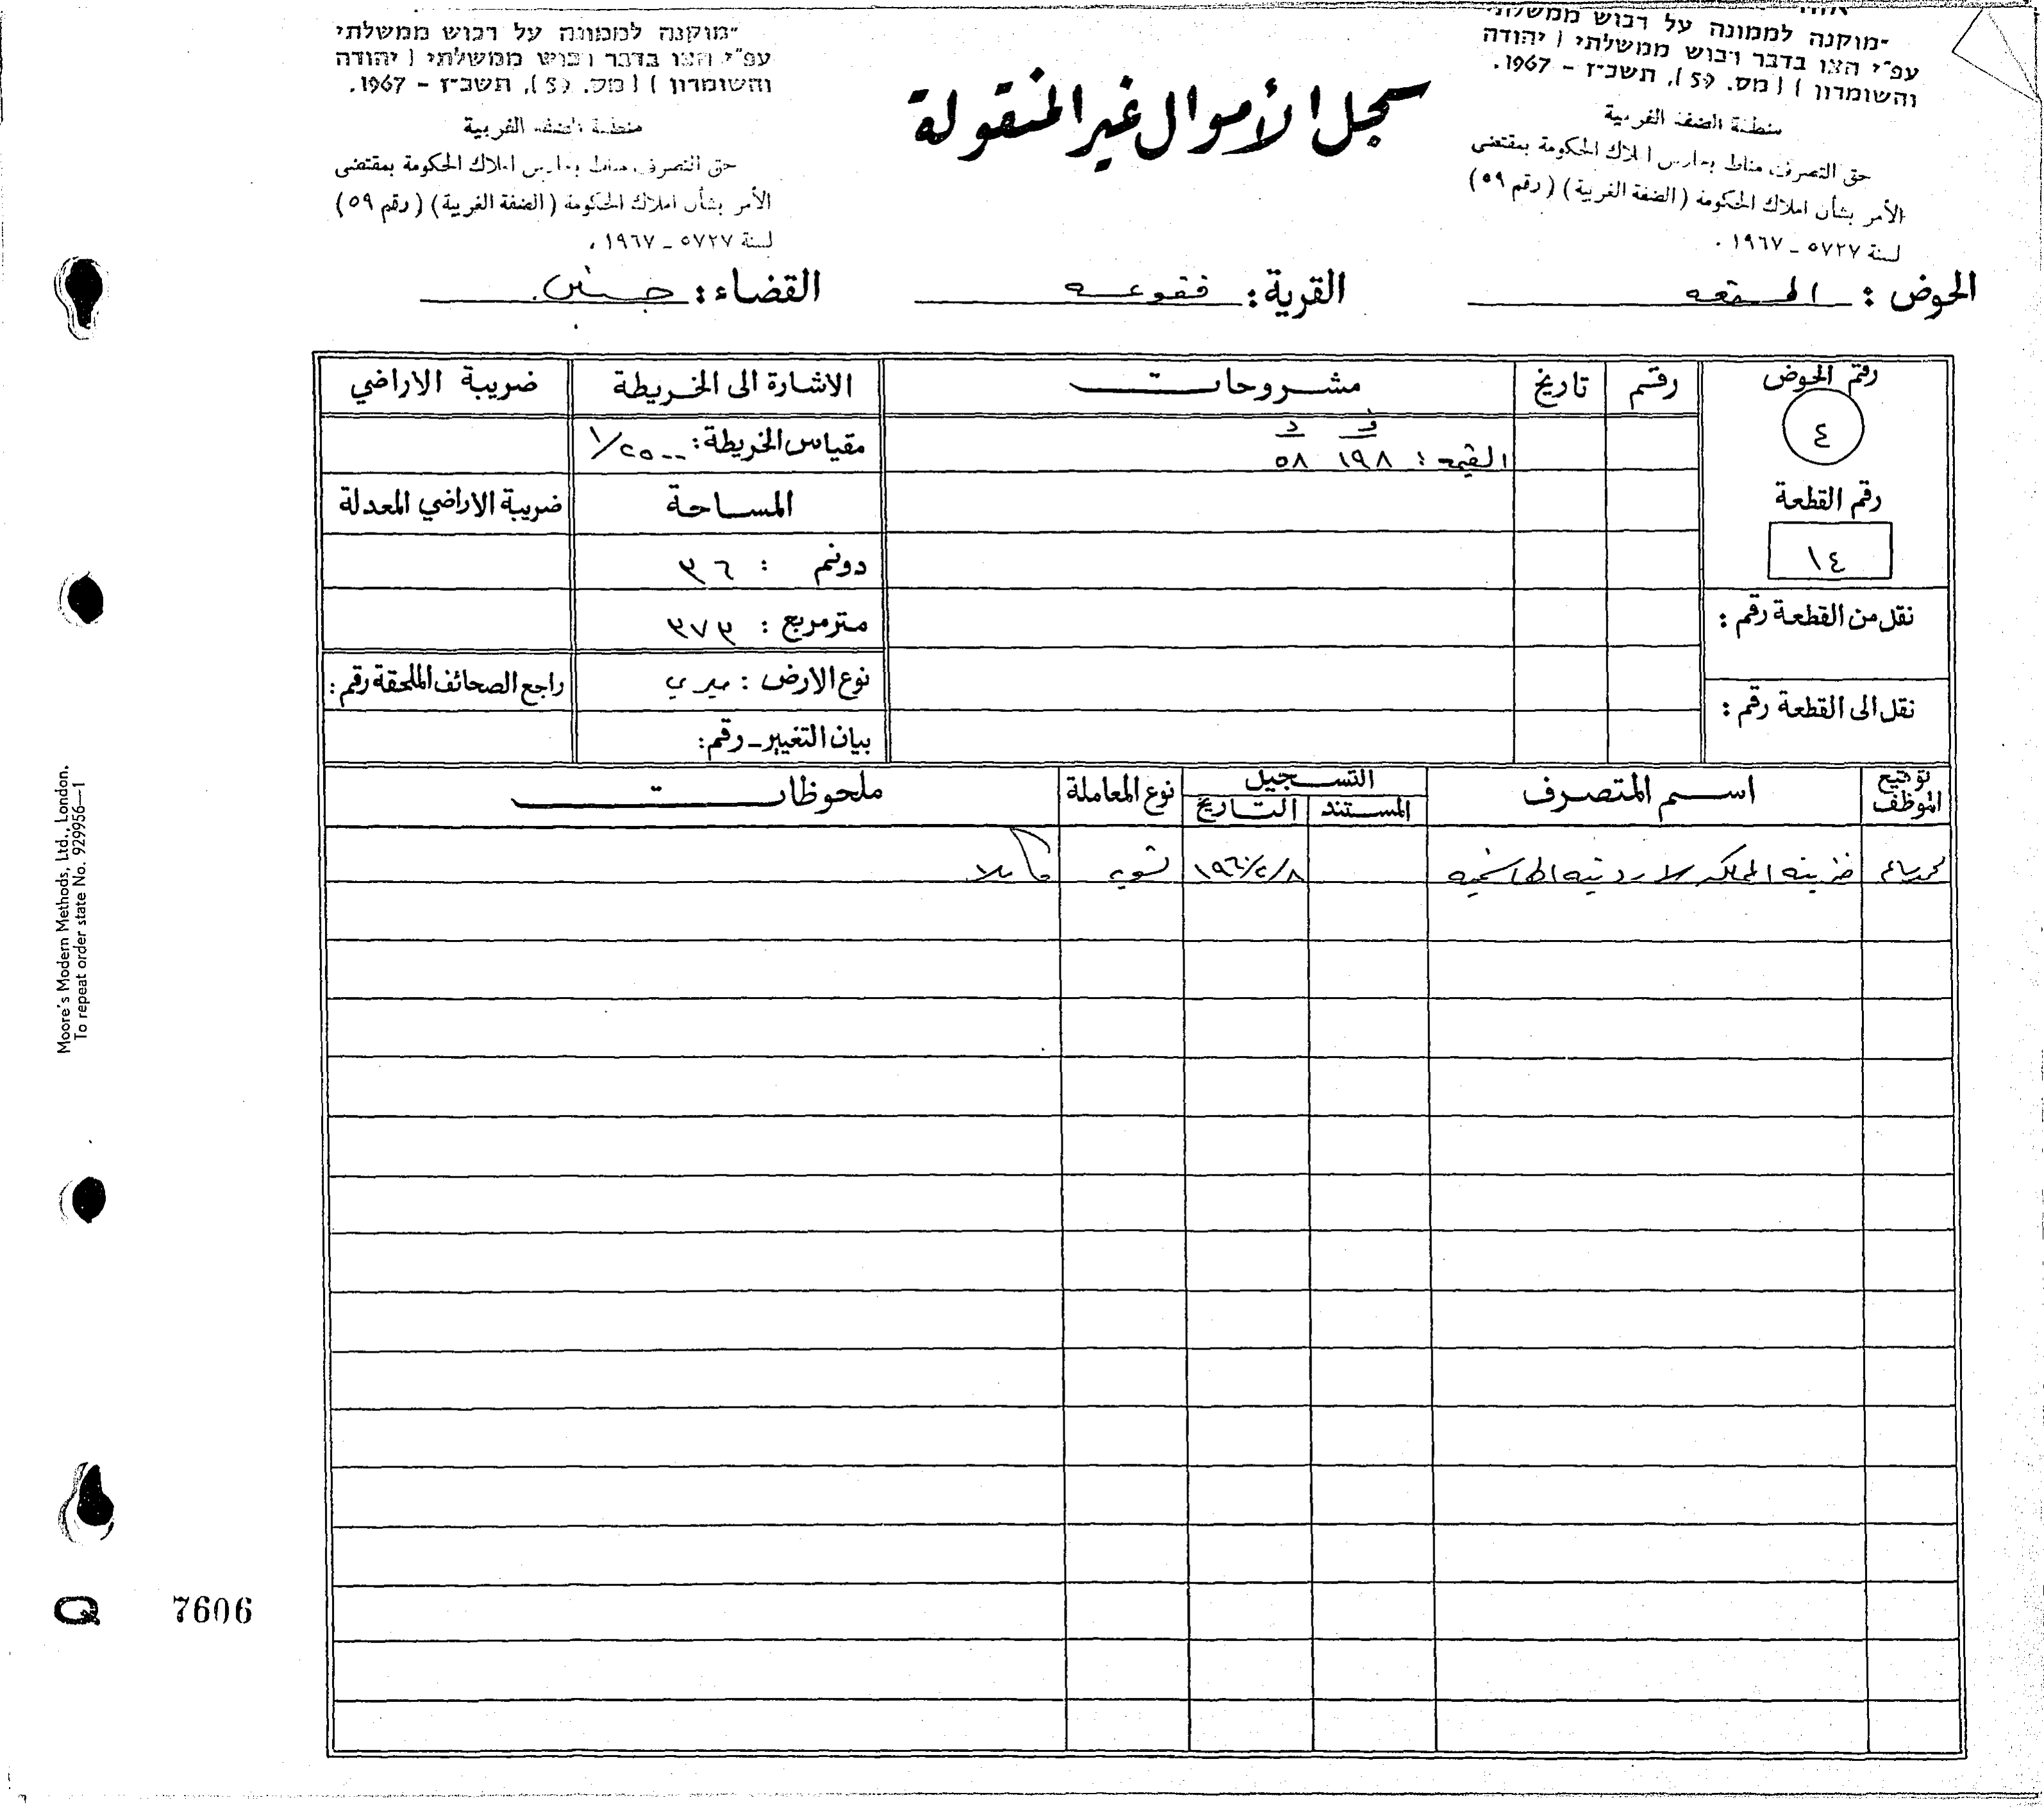 "מוקנה לממונה על רכוש ממשלתי
עפ"י הצו בדבר רכוש ממשלתי ( יהודה
והשומרון ) ( מס. 59 ), תשכ"ז – 1967.
منطقة الضفة الغربية
حق التصرف مناط بحارس املاك الحكومة بمقتضى
الأمر بشأن املاك الحكومة (الضفة الغربية) (رقم ٥٩)
لسنة ٥٧٢٧ - ١٩٦٧ .
سجل الأموال غير المنقولة
"מוקנה לממונה על רכוש ממשלתי
עפ"י הצו בדבר רכוש ממשלתי ( יהודה
והשומרון ) ( מס. 59 ), תשכ"ז – 1967.
منطقة الضفة الغربية
حق التصرف مناط بحارس املاك الحكومة بمقتضى
الأمر بشأن املاك الحكومة (الضفة الغربية) (رقم ٥٩)
لسنة ٥٧٢٧ - ١٩٦٧ .
الحوض : القرية : فقوعه القضاء : جنين
رقم الحوض رقم تاريخ مشروحات الاشارة الى الخريطة ضريبة الاراضي
٤
ف د
القيمة : ١٩٨ ٥٨
مقياس الخريطة : ١/٢٥٠٠
رقم القطعة المساحة ضريبة الاراضي المعدلة
١٤
دونم : ٣٦
نقل من القطعة رقم :
متر مربع : ٣٧٣
نوع الارض : ميري راجع الصحائف الملحقة رقم :
نقل الى القطعة رقم :
بيان التغيير - رقم :
توقيع الموظف اسم المتصرف التسجيل نوع المعاملة ملحوظات
المستند التاريخ
خزينة المملكه الاردنيه الهاشميه ١٩٦٠/٢/٨ تسويه كاملا
Moore's Modern Methods, Ltd., London.
To repeat order state No. 929956—1
Q 7606